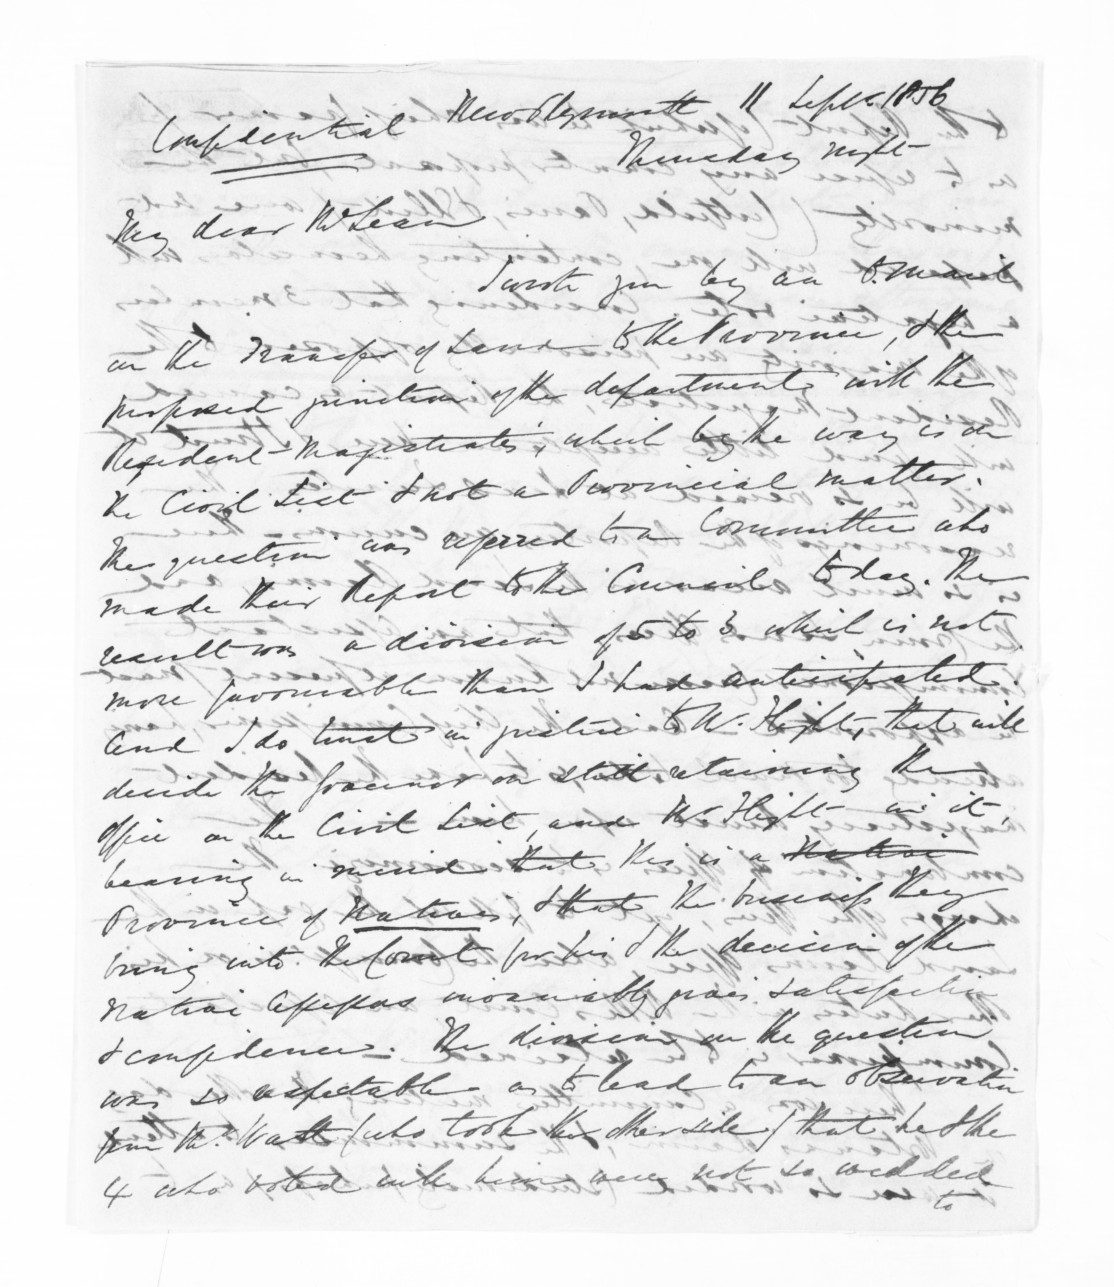 New Plymouth 11 Sept. 1856
Confidential
Thursday night
My dear McLean
I wrote you by an O. Mail
on the Transfer of Land to the Province, & the
proposed junction of the departments with the
Resident Magistrates, which by the way is on
the Civil List & not a Provincial matter.
The question was referred to a Committee who
made their Report to the Council to day. The
result was a division of 5 to 3 which is not
more favourable than I had anticipated.
And I do trust in justice to Mr. Flight, that will
decide the Governor on still retaining the
office on the Civil List, and Mr. Flight in it,
bearing in mind that this is a Native
Province of Natives, & that the business they
bring into the Court for his & the decision of the
Native Assessors invariably gives satisfaction
& confidence. The division on the question
was so respectable as to lead to an observation
from Mr. Watt (who took the other side) that he & the
4 who voted with him were not so wedded
to